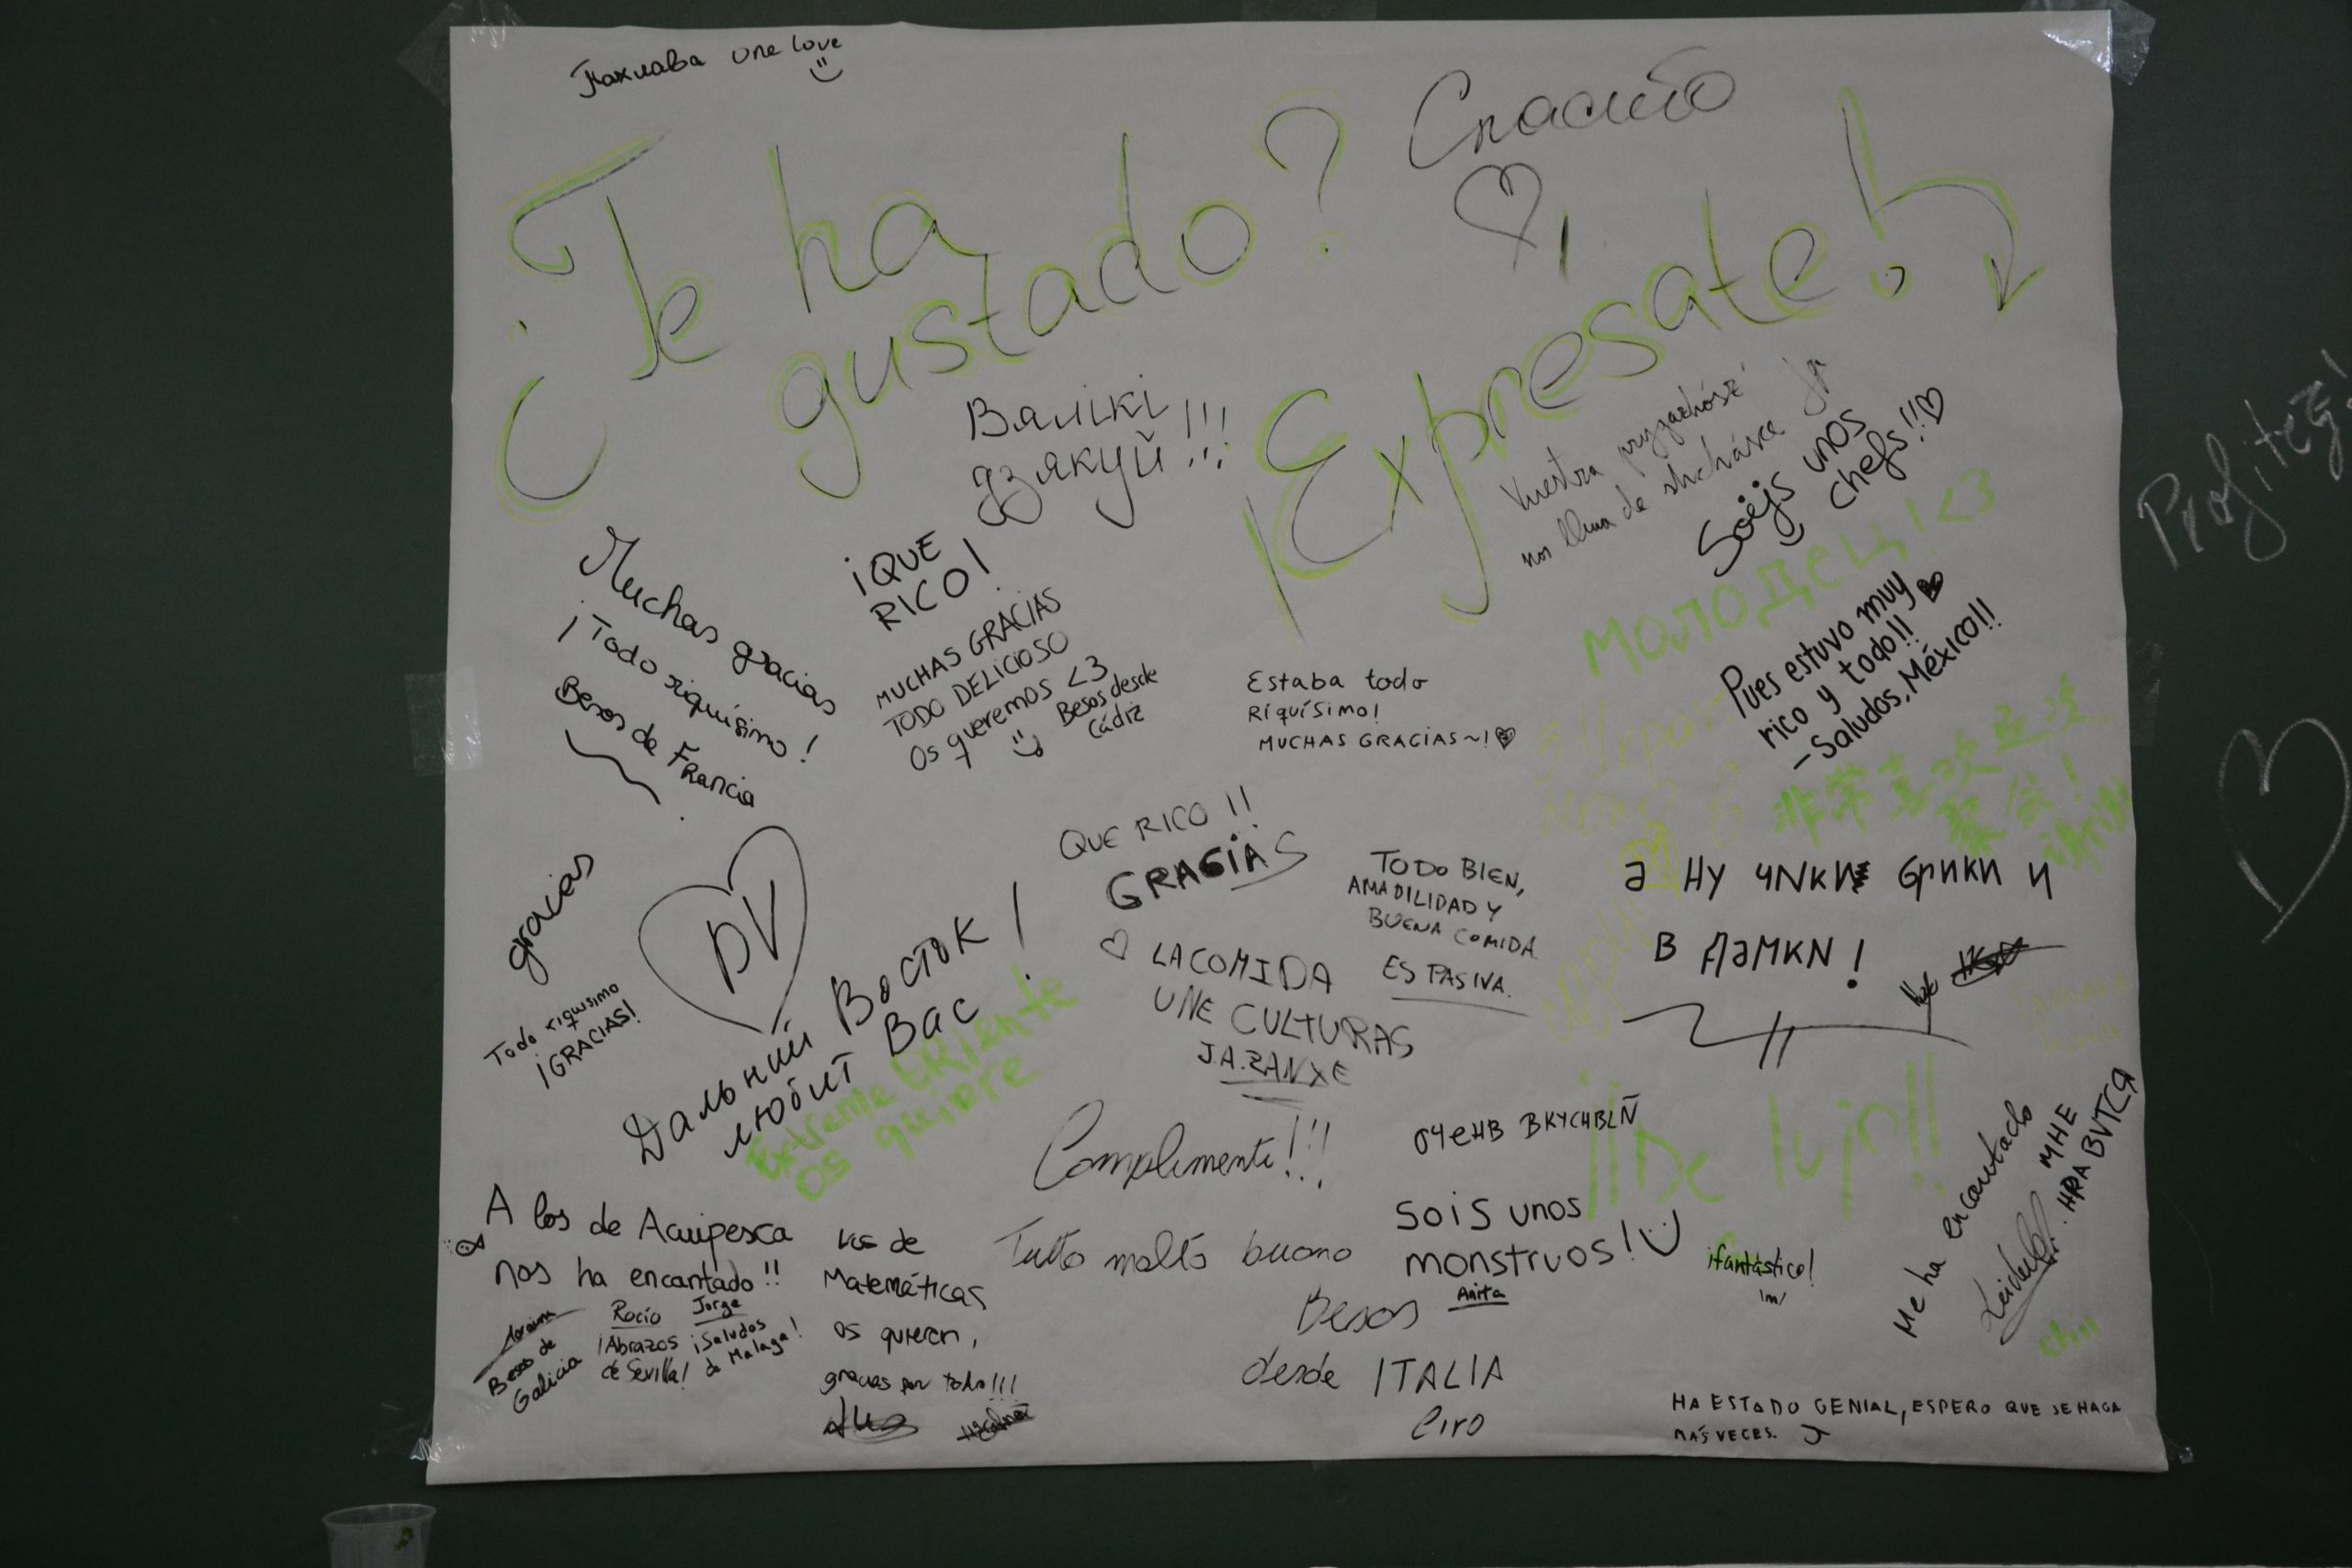 Пахлава one love
Спасибо
¿Te ha
gustado?
¡Exprésate!
Вялікі
дзякуй!!!
Vuestra
nos llena de
Soèjs unos
chefs!!
молодец! <3
¡QUE
RICO!
Muchas gracias
¡Todo riquísimo!
Besos de Francia
MUCHAS GRACIAS
TODO DELICIOSO
Os queremos <3
Besos desde
Cádiz
Estaba todo
Riquísimo!
MUCHAS GRACIAS~!
Pues estuvo muy
rico y todo!!
-Saludos, México!!
非常喜欢这次
聚会!
gracias
Todo riquisimo
¡GRACIAS!
DV
Дальний Восток!
любит Вас
Extremo ORiente
os quiere
QUE RICO!!
GRACIAS
LA COMIDA
UNE CULTURAS
J.A.RANXE
TODO BIEN,
AMABILIDAD Y
BUENA COMIDA.
ES PASIVA.
а ну чики брики и
в дамки!
очень вкусный
¡¡De lujo!!
Complimenti!!!
Tutto molto buono
Besos
desde ITALIA
Ciro
Sois unos
monstruos!
Anita
¡fantástico!
Me ha encantado
МНЕ
НРАВИТСЯ
A los de Acuipesca
nos ha encantado!!
Besos de
Galicia
Rocío
¡Abrazos
de Sevilla!
Jorge
¡Saludos
de Malaga!
Los de
Matemáticas
os quieren,
gracias por todo!!!
HA ESTADO GENIAL, ESPERO QUE SE HAGA
MÁS VECES.
Profitez!